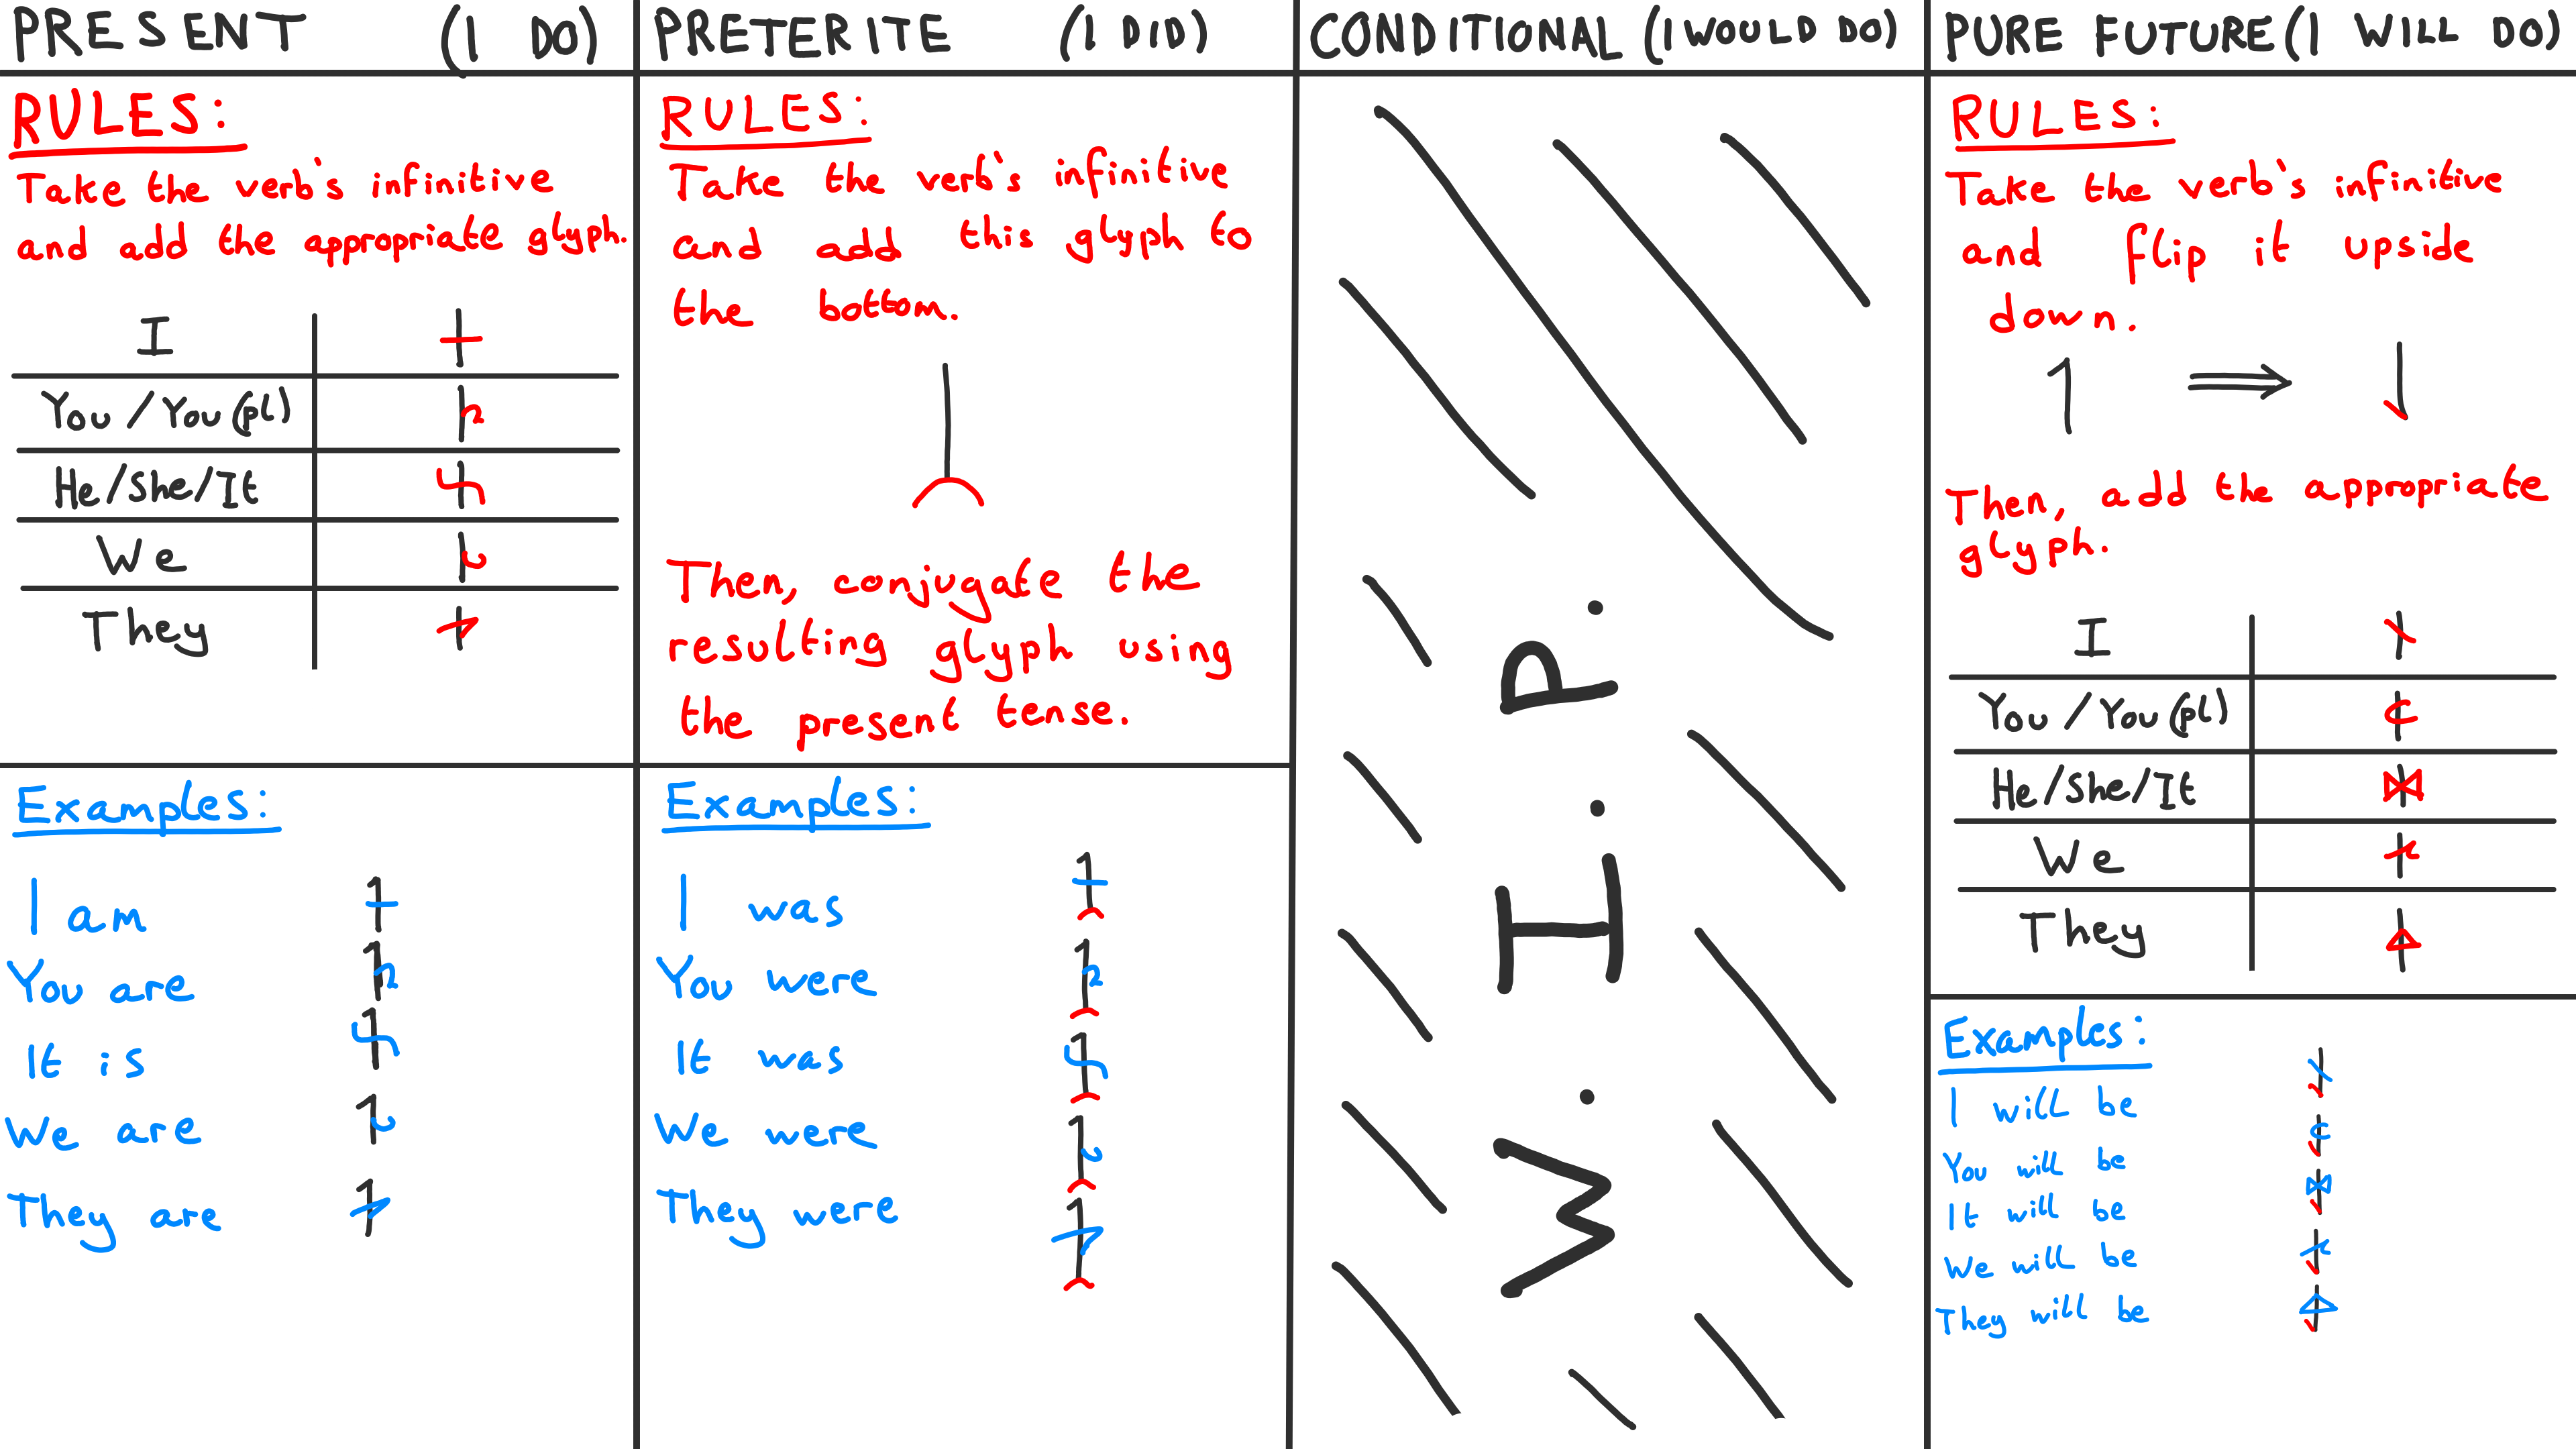 PRESENT (I DO)
RULES:
Take the verb's infinitive
and add the appropriate glyph.
I
You / You (pl)
He/She/It
We
They
Examples:
I am
You are
It is
We are
They are
PRETERITE (I DID)
RULES:
Take the verb's infinitive
and add this glyph to
the bottom.
Then, conjugate the
resulting glyph using
the present tense.
Examples:
I was
You were
It was
We were
They were
CONDITIONAL (I WOULD DO)
W.I.P.
PURE FUTURE (I WILL DO)
RULES:
Take the verb's infinitive
and flip it upside
down.
Then, add the appropriate
glyph.
I
You / You (pl)
He/She/It
We
They
Examples:
I will be
You will be
It will be
We will be
They will be